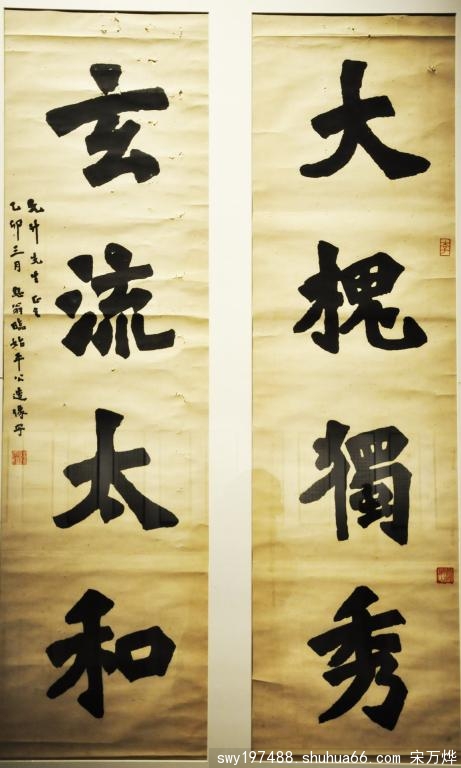 大槐獨秀
玄流太和
先生
乙卯三月 翁臨始平公造像字
swy197488.shuhua66.com 宋万烨